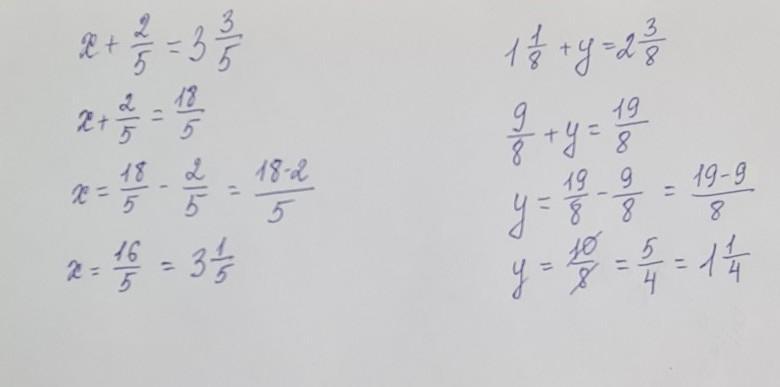 x + 2/5 = 3 3/5
x + 2/5 = 18/5
x = 18/5 - 2/5 = 18-2/5
x = 16/5 = 3 1/5
1 1/8 + y = 2 3/8
9/8 + y = 19/8
y = 19/8 - 9/8 = 19-9/8
y = 10/8 = 5/4 = 1 1/4